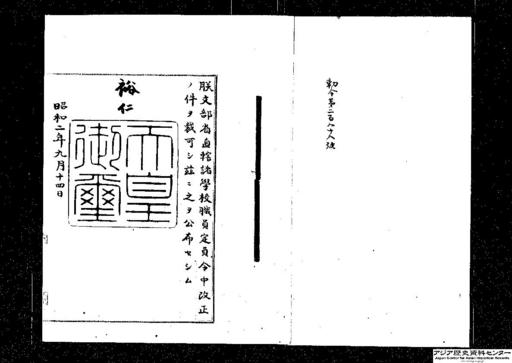 勅令第二百八十八號
朕文部省直轄諸學校職員定員令中改正
ノ件ヲ裁可シ玆ニ之ヲ公布セシム
裕仁
天皇御璽
昭和二年九月十四日
アジア歴史資料センター
Japan Center for Asian Historical Records